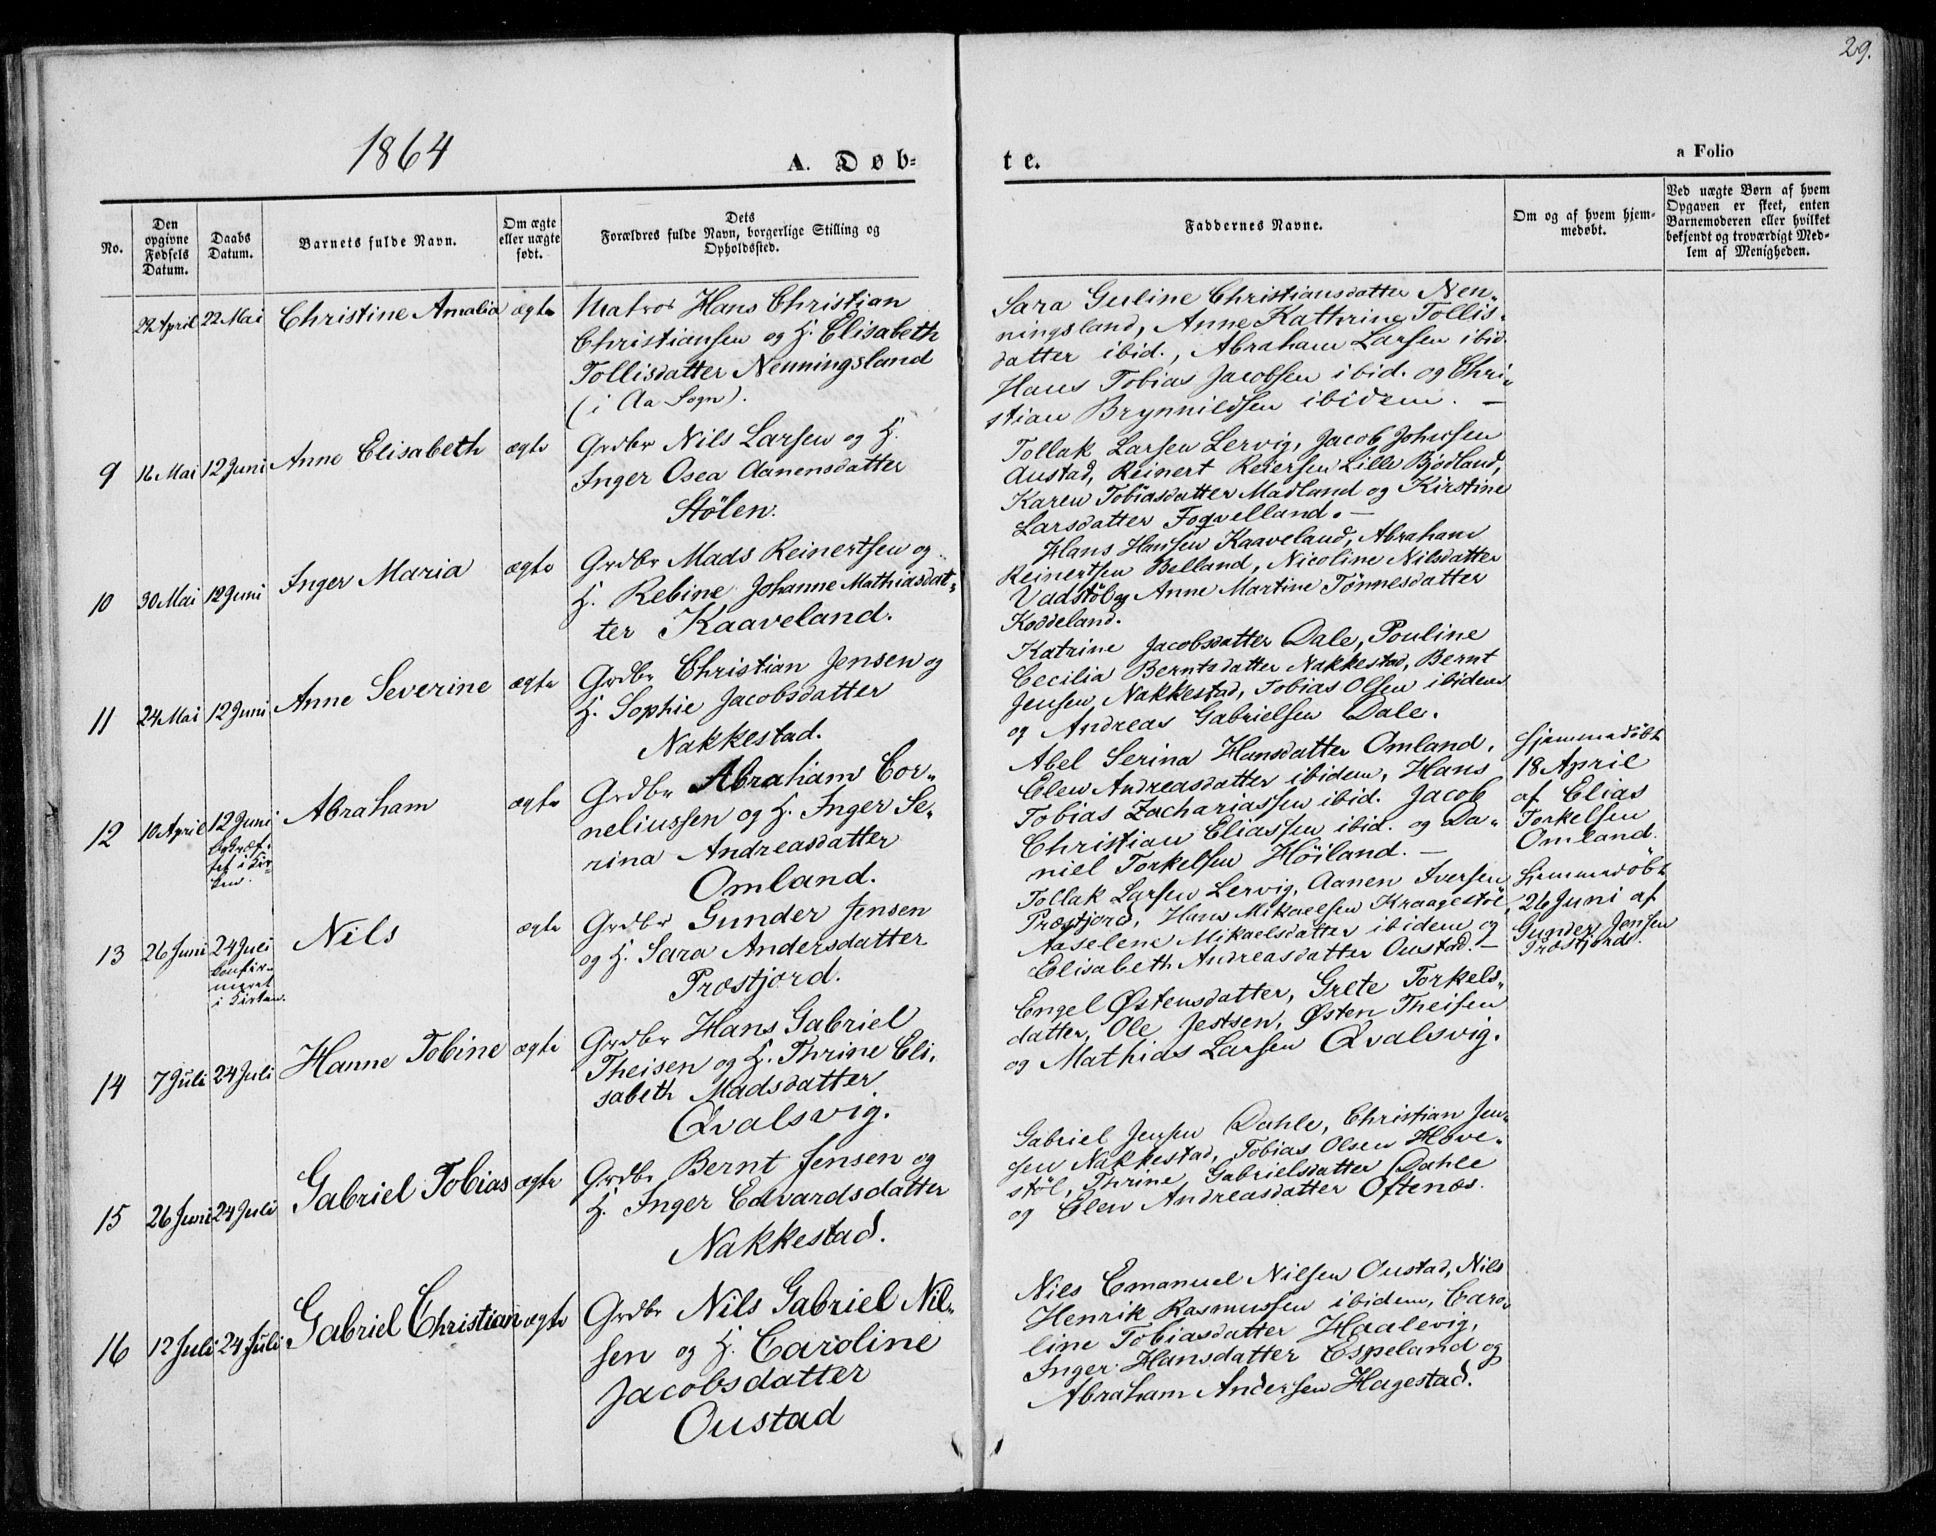 29.
1864
A. Døb-
te.
a Folio
No.
Den
opgivne
Fødsels
Datum.
Daabs
Datum.
Barnets fulde Navn.
Om ægte
eller uægte
født.
Dets
Forældres fulde Navn, borgerlige Stilling og
Opholdssted.
Faddernes Navne.
Om og af hvem hjem-
medøbt.
Ved uægte Børn af hvem
Opgaven er skeet, enten
Barnemoderen eller hvilket
bekjendt og troværdigt Med-
lem af Menigheden.
22 April
22 Mai
Christine Amalia
ægte
Matros Hans Christian
Christiansen og H. Elisabeth
Tollisdatter Nenningsland
(i Aa Sogn).
Sara Guline Christiansdatter Nen-
ningsland, Anne Kathrine Tollis-
datter ibid., Abraham Larsen ibid.
Hans Tobias Jacobsen ibid. og Chri-
stian Brynnildsen ibidem. —
9
16 Mai
12 Juni
Anne Elisabeth
ægte
Grdbr Nils Larsen og H.
Inger Osea Aanensdatter
Stölen.
Tollak Larsen Lervig, Jacob Johnsen
Austad, Reinert Reiersen Lille Bjödland,
Karen Tobiasdatter Madland og Kirstine
Larsdatter Foqvelland. —
10
30 Mai
12 Juni
Inger Maria
ægte
Grdbr Mads Reinertsen og
H. Rebine Johanne Mathiasdat-
ter Kaaveland.
Hans Hansen Kaaveland, Abraham
Reinertsen Belland, Nicoline Nilsdatter
Vadstöl og Anne Martine Tönnesdatter
Koddeland.
11
24 Mai
12 Juni
Anne Severine
ægte
Grdbr Christian Jensen og
H. Sophie Jacobsdatter
Nakkestad.
Katrine Jacobsdatter Dale, Pouline
Cecilia Berntsdatter Nakkestad, Bernt
Jensen Nakkestad, Tobias Olsen ibidem
og Andreas Gabrielsen Dale.
12
10 April
12 Juni
bekræf-
tet i Kir-
ken.
Abraham
ægte
Grdbr Abraham Cor-
neliussen og H. Inger Se-
rina Andreasdatter
Omland.
Abel Serina Hansdatter Omland,
Elen Andreasdatter ibidem, Hans
Tobias Zachariassen ibid. Jacob
Christian Eliassen ibid. og Da-
niel Torkelsen Höiland. —
Hjemmedöbt
18 April
af Elias
Torkelsen
Omland.
13
26 Juni
24 Juli
confir-
meret
i Kirken.
Nils
ægte
Grdbr Gunder Jensen
og H. Sara Andersdatter
Præstjord.
Tollak Larsen Lervig, Aanen Iversen
Præstjord, Hans Mikaelsen Kraagestöl,
Aaselene Mikaelsdatter ibidem og
Elisabeth Andreasdatter Oustad. —
Hjemmedöbt
26 Juni af
Gunder Jensen
Præstjord.
14
7 Juli
24 Juli
Hanne Tobine
ægte
Grdbr Hans Gabriel
Theisen og H. Thrine Eli-
sabeth Madsdatter
Qvalsvig.
Engel Østensdatter, Grete Torkels-
datter, Ole Jestsen, Østen Theisen
og Mathias Larsen Qvalsvig.
15
26 Juni
24 Juli
Gabriel Tobias
ægte
Grdbr Bernt Jensen og
H. Inger Edvardsdatter
Nakkestad.
Gabriel Jensen Dahle, Christian Jen-
sen Nakkestad, Tobias Olsen Hove-
stöl, Thrine Gabrielsdatter Dahle
og Elen Andreasdatter Oftenæs.
16
12 Juli
24 Juli
Gabriel Christian
ægte
Grdbr Nils Gabriel Nil-
sen og H. Caroline
Jacobsdatter
Oustad
Nils Emanuel Nilsen Oustad, Nils
Henrik Rasmussen ibidem, Caro-
line Tobiasdatter Haalevig,
Inger Hansdatter Espeland og
Abraham Andersen Hagestad.